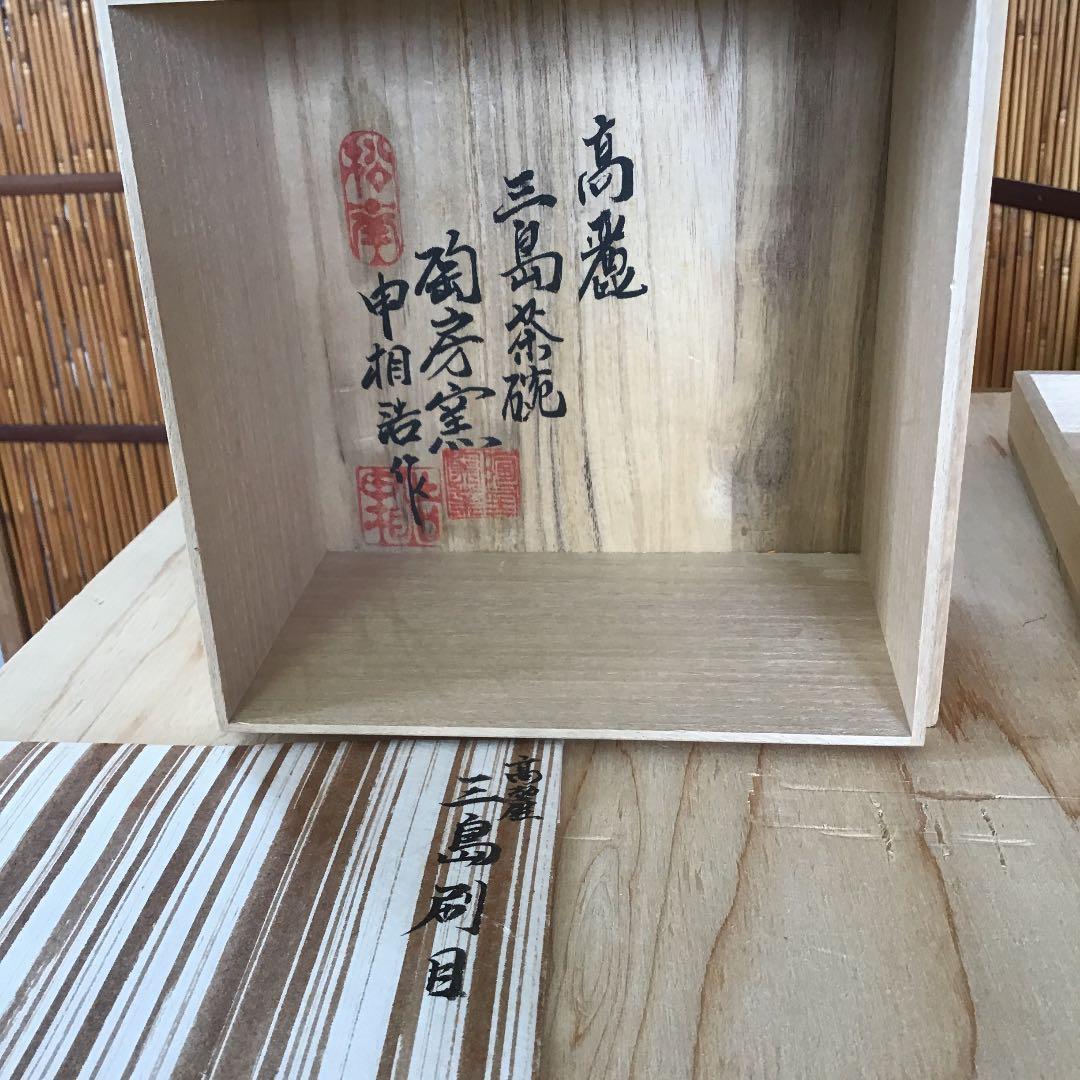 高麗
三島茶碗
陶房窯
申相浩作
高麗
三島刷目